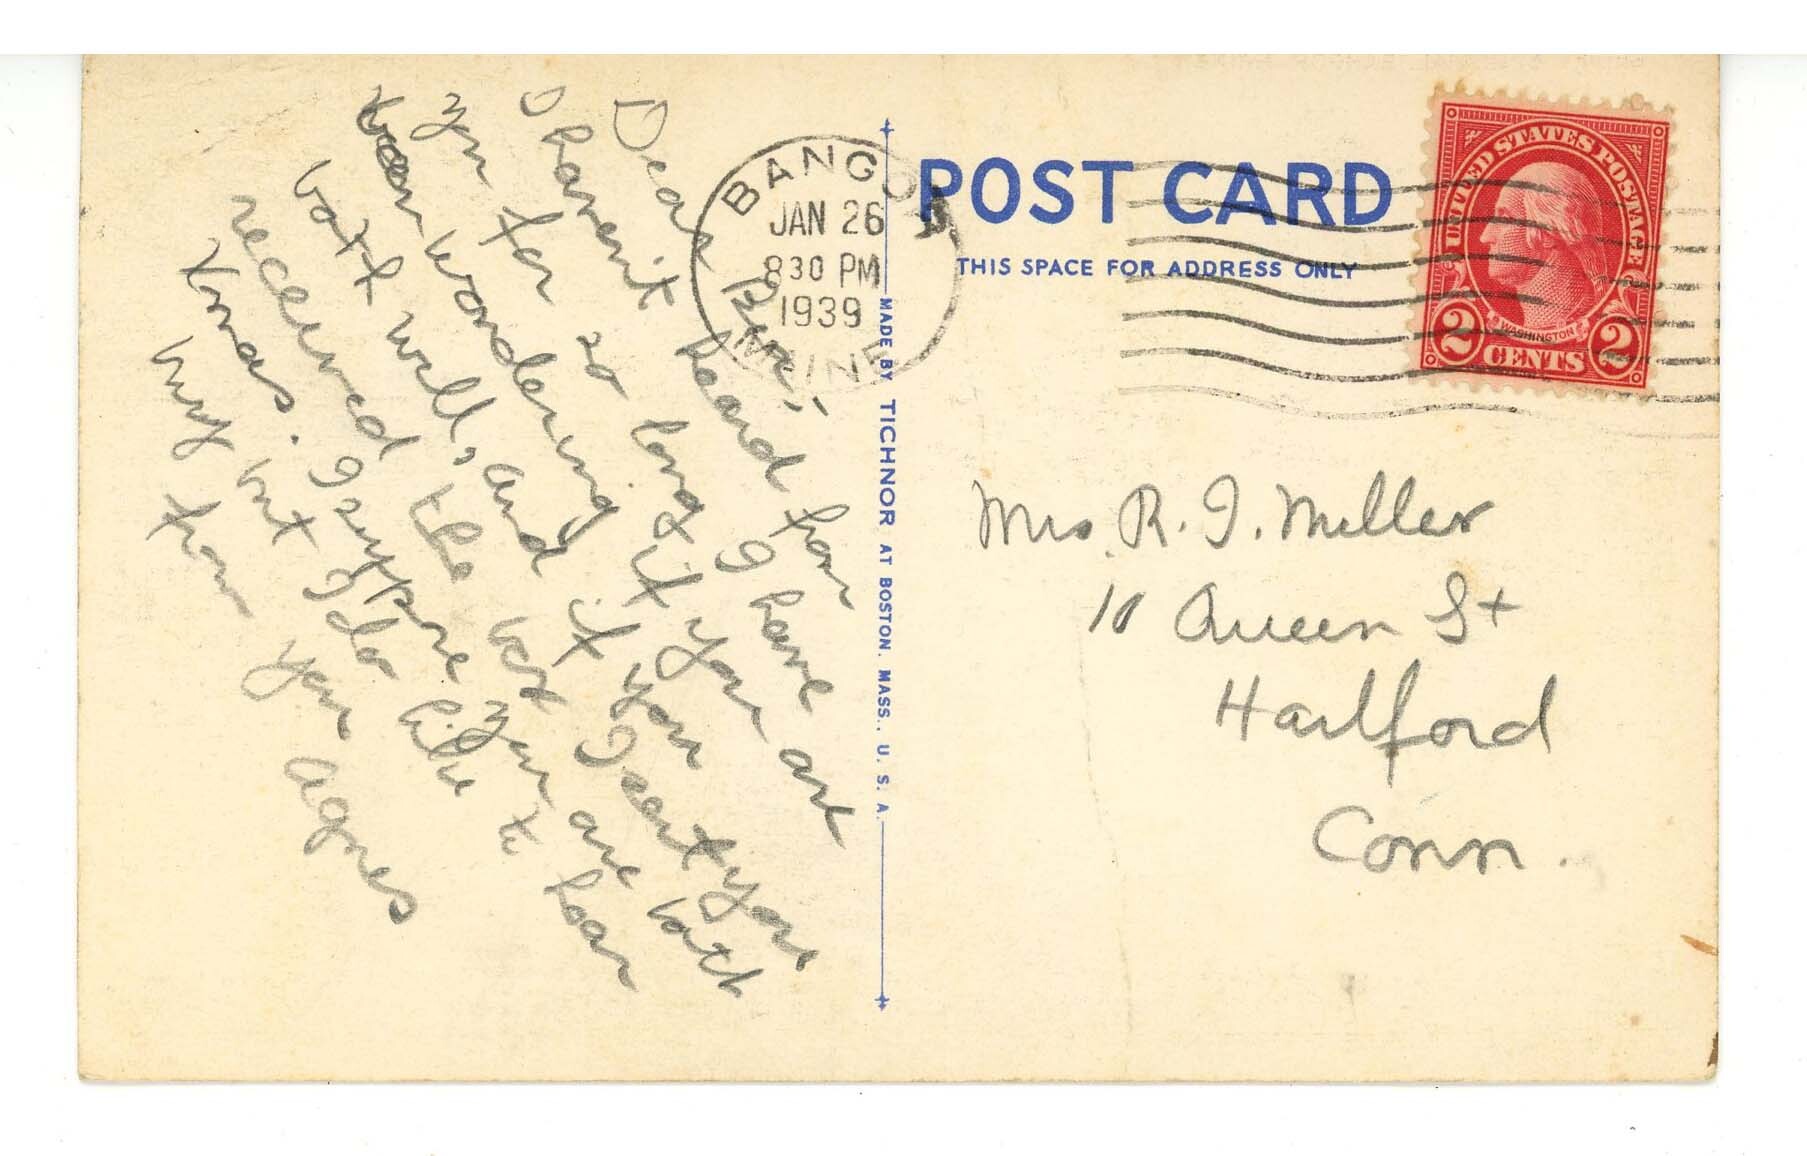 Dear
I haven't heard from
you for so long I have
been wondering if you are
both well, and if you
received the box I sent you
Xmas. I suppose you are both
busy but I do like to hear
from you Agnes
BANGOR
JAN 26
830 PM
1939
MAINE
MADE BY TICHNOR AT BOSTON. MASS., U. S. A.
POST CARD
THIS SPACE FOR ADDRESS ONLY
UNITED STATES POSTAGE
WASHINGTON
2 CENTS 2
Mrs. R. J. Miller
10 Queen St
Hartford
Conn.